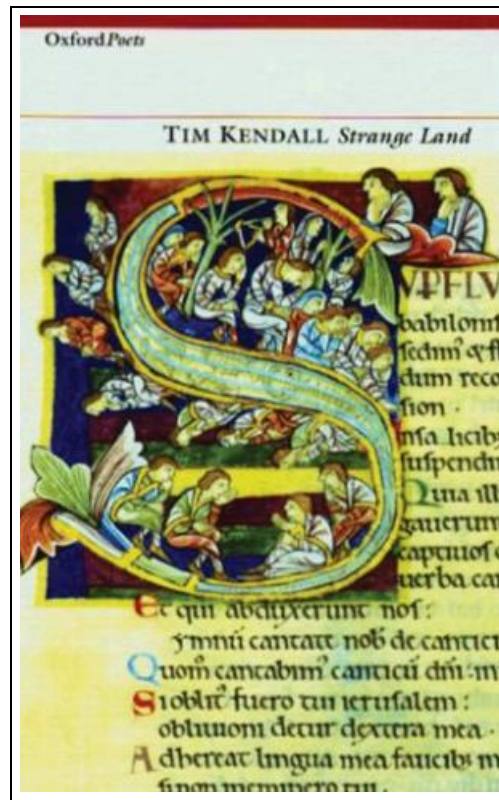 OxfordPoets
TIM KENDALL Strange Land
S
VPFLV
babilonn
sedim⁹ & fl
dum reco
sion ·
suspendi
Quia ill
captiuos
uerba can
Et qui abduxerunt nos:
ymnū cantate nob de cantici
Quom̄ cantabim⁹ canticū dn̄i · in
Si oblit⁹ fuero tui ierusalem:
obliuioni detur dextera mea ·
Adhereat lingua mea faucib; m
si non meminero tui ·